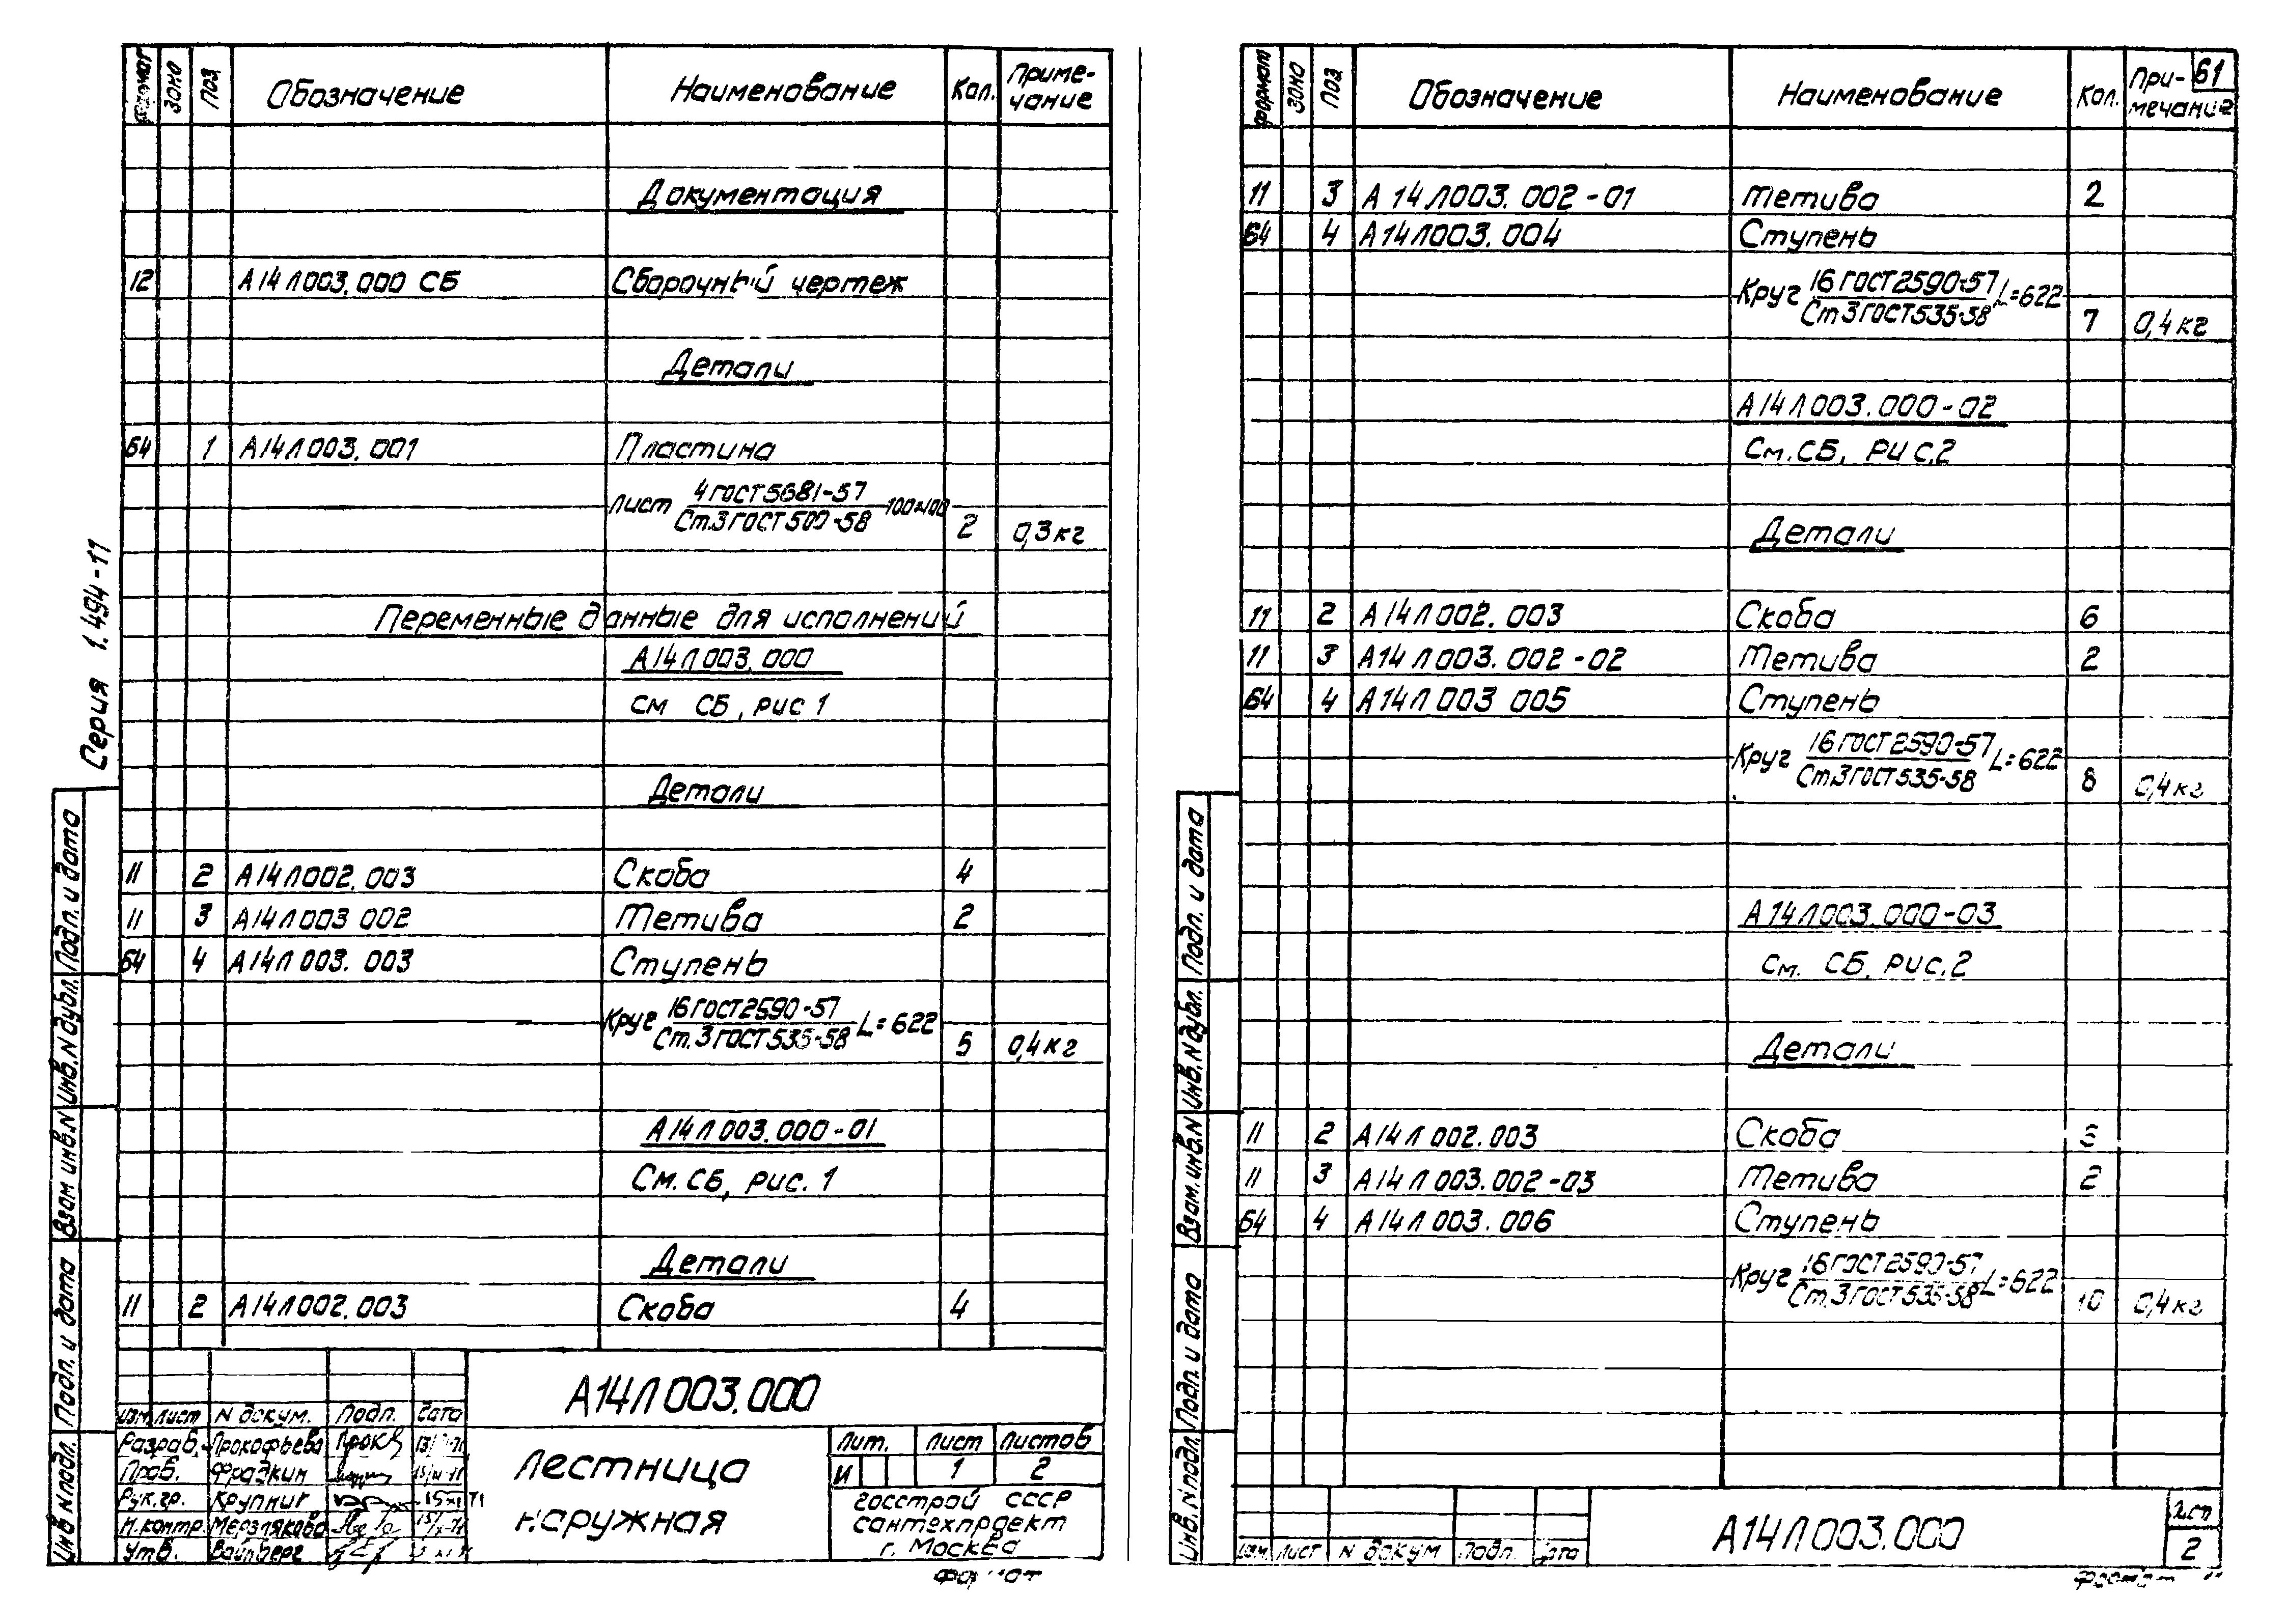 Серия 1.494-11
Формат Зона Поз. Обозначение Наименование Кол. Приме-
чание
Документация
12 А14Л003.000 СБ Сборочный чертеж
Детали
Б4 1 А14Л003.001 Пластина
Лист 4 ГОСТ 5681-57 100×100
Ст.3 ГОСТ 500-58 2 0,3кг
Переменные данные для исполнений
А14Л003.000
См СБ, рис 1
Детали
11 2 А14Л002.003 Скоба 4
11 3 А14Л003 002 Тетива 2
Б4 4 А14Л003.003 Ступень
Круг 16 ГОСТ 2590-57 L=622
Ст.3 ГОСТ 535-58 5 0,4кг
А14Л003.000-01
См. СБ, рис. 1
Детали
11 2 А14Л002.003 Скоба 4
Подп. и дата
Инв. N дубл.
Взам инв. N
Подп. и дата
Инв N подл.
А14Л003.000
Изм. Лист N докум. Подп. Дата
Разраб. Прокофьева
Проб. Фрадкин
Рук. гр. Крупник
Н. контр. Мерзлякова
Утв. Вайнберг
Лестница
наружная
Лит. Лист Листов
И 1 2
Госстрой СССР
сантехпроект
г. Москва
Формат
61
Формат Зона Поз. Обозначение Наименование Кол. При-
мечание
11 3 А14Л003.002-01 Тетива 2
Б4 4 А14Л003.004 Ступень
Круг 16 ГОСТ 2590-57 L=622
Ст3 ГОСТ 535-58 7 0,4кг
А14Л003.000-02
См. СБ, рис.2
Детали
11 2 А14Л002.003 Скоба 6
11 3 А14Л003.002-02 Тетива 2
Б4 4 А14Л003 005 Ступень
Круг 16 ГОСТ 2590-57 L=622
Ст.3 ГОСТ 535-58 8 0,4кг
А14Л003.000-03
См. СБ, рис.2
Детали
11 2 А14Л002.003 Скоба
11 3 А14Л003.002-03 Тетива 2
Б4 4 А14Л003.006 Ступень
Круг 16 ГОСТ 2590-57 L=622
Ст.3 ГОСТ 535-58 10 0,4кг
Подп. и дата
Инв. N дубл.
Взам. инв. N
Подп. и дата
Инв. N подл.
Изм Лист N докум Подп. Дата
А14Л003.000
Лист
2
Формат